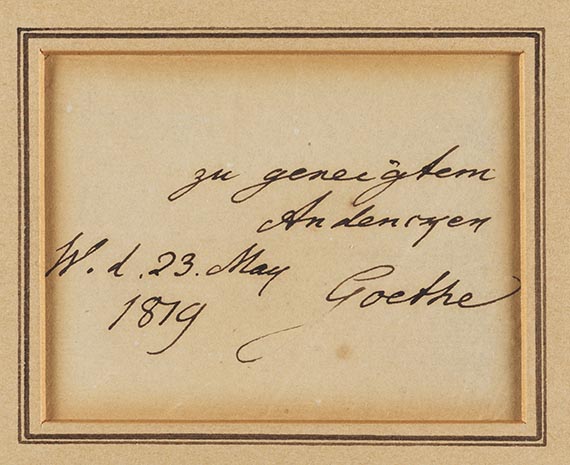 zu geneigtem
Andencken
W. d. 23. May
1819 Goethe